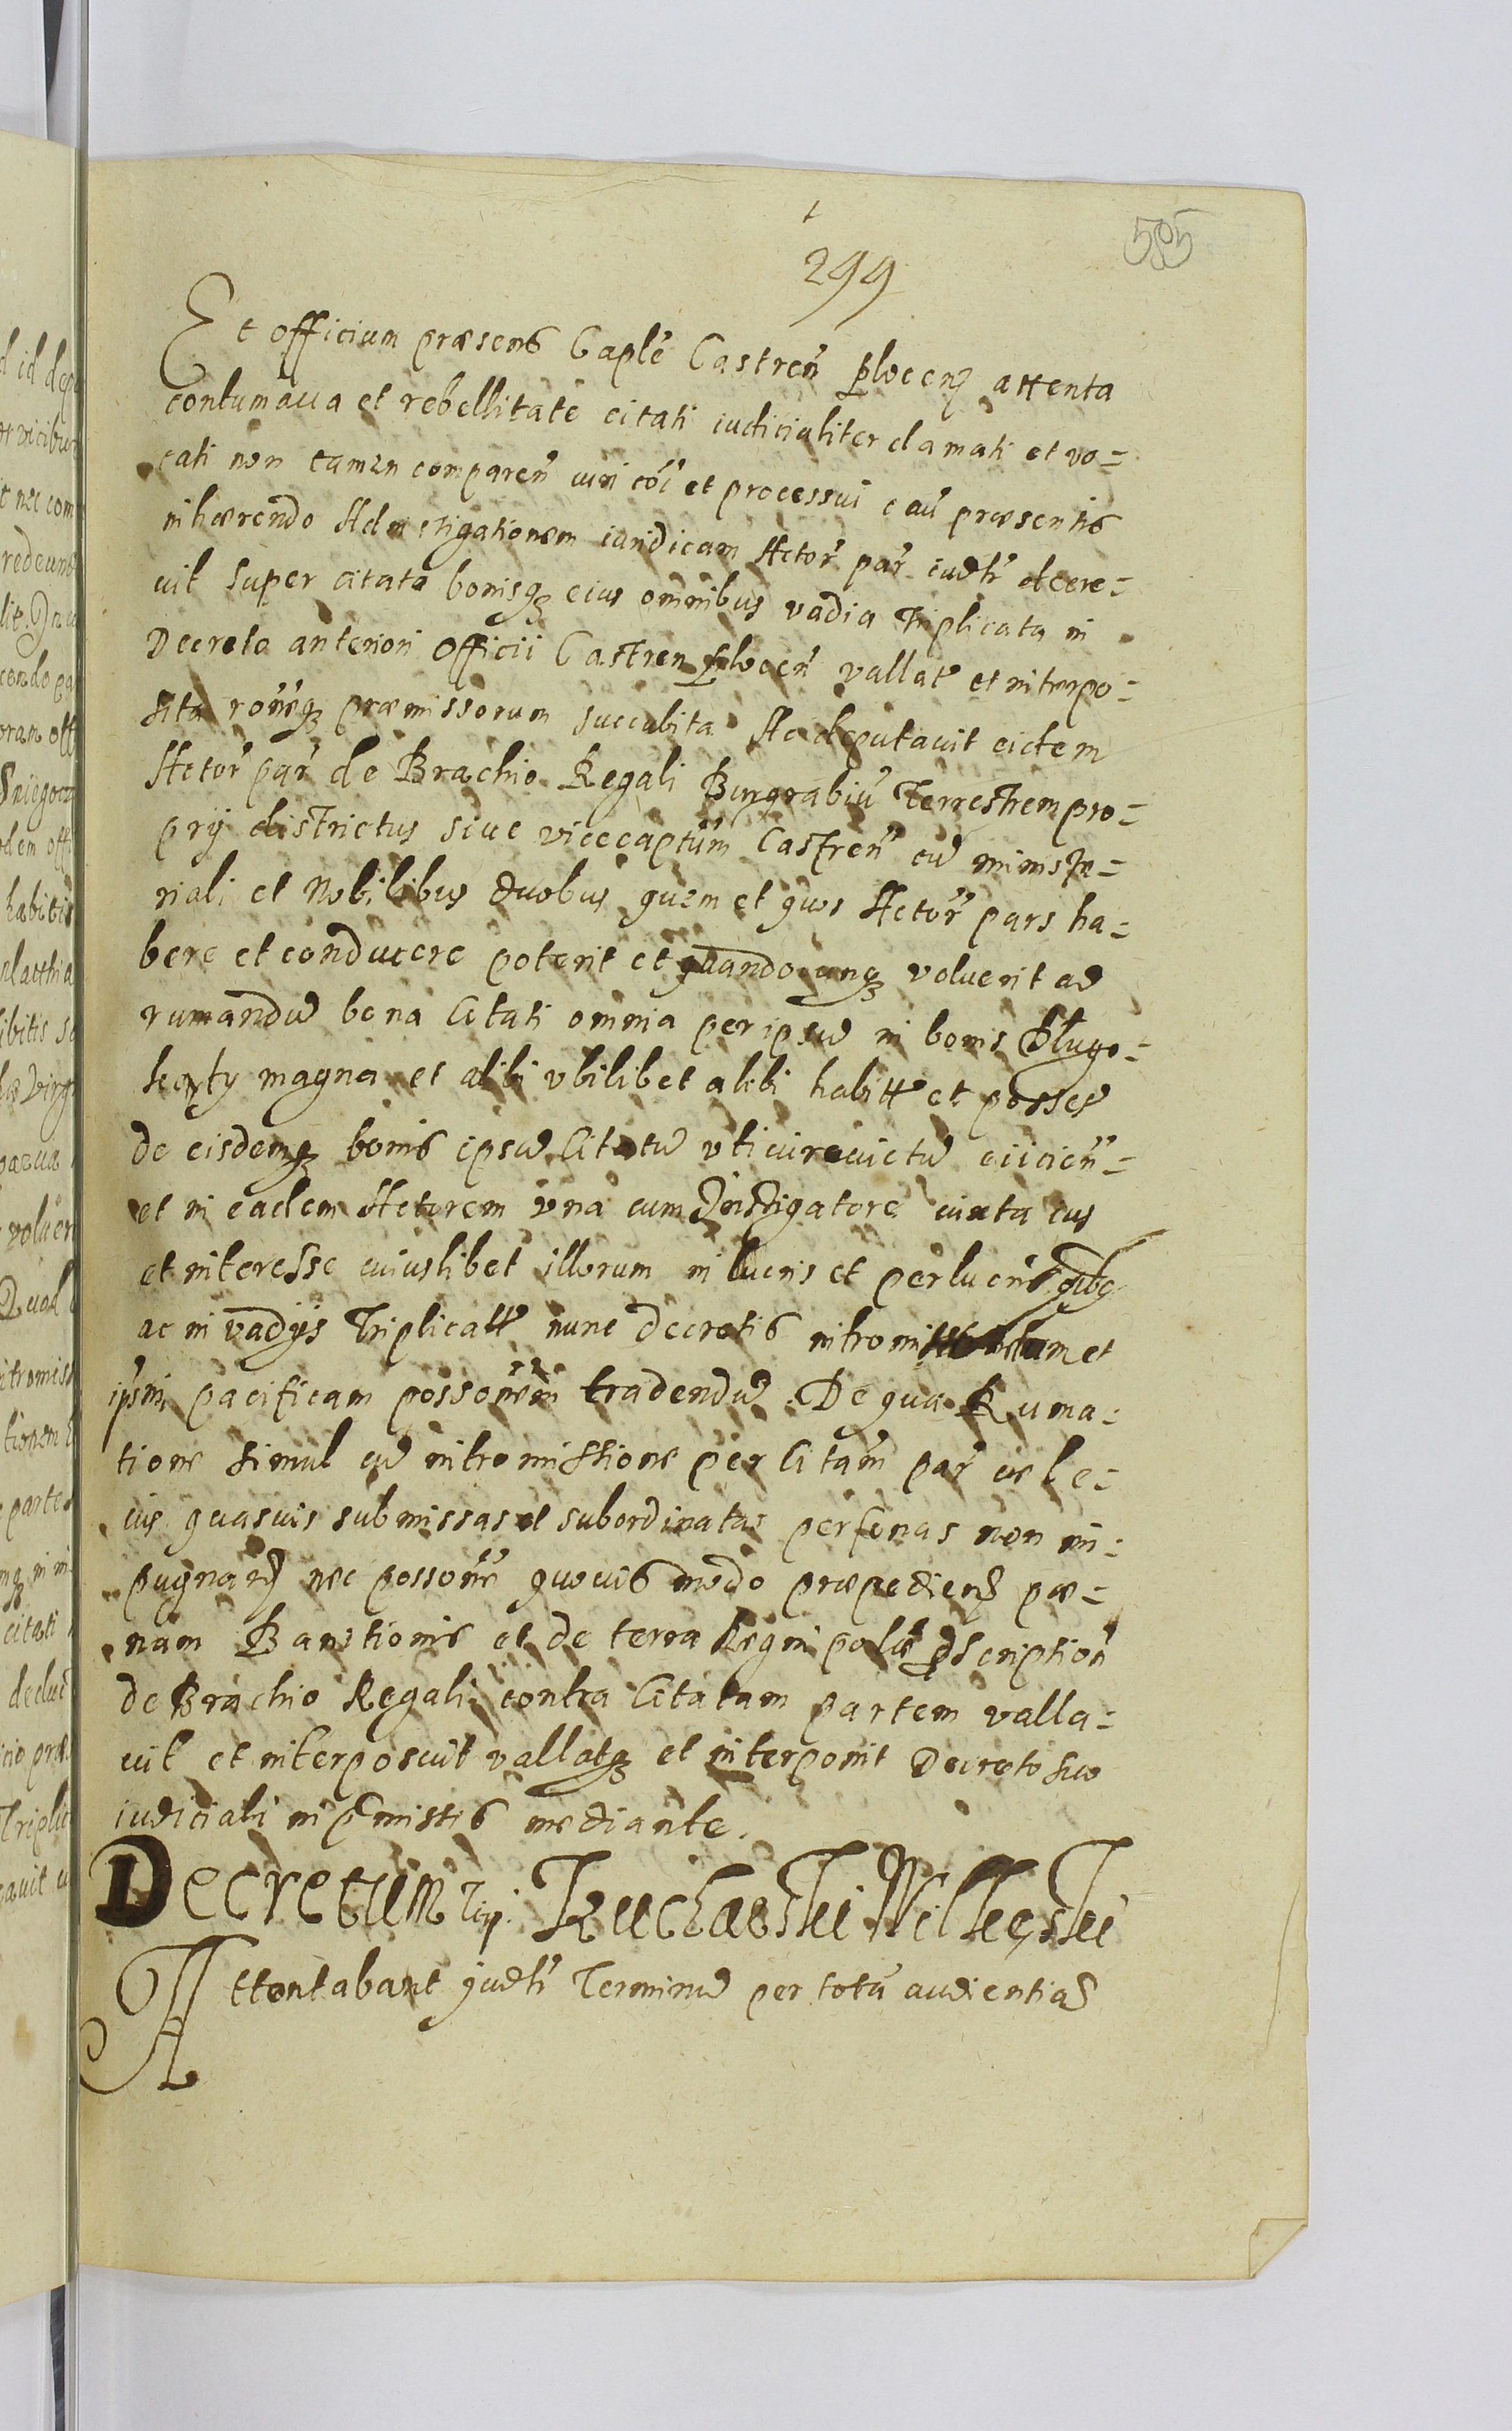 505
299
Et officium præsens Caplē Castren̄ plocen̄ attenta
contumacia et rebellitate citati iudicialiter clamati et vo=
cati non tamen comparen̄ iuri cōi et processui cau præsentis
inhærendo Ad instigationem iuridicam Actor̄ par̄ iudtr̄ decre=
uit super citato bonisq eius omnibus vadia Triplicata in
Decreto anteriori Officii Castren plocen̄ vallat et interpo=
sita rōneq præmissorum succubita Ac deputauit eidem
Actor̄ par̄ de Brachio Regali Burgrabiū Terrestrem pro=
prij districtus siue vicecaptūm Castren̄ cu ministe=
riali et Nobilibus duobus quem et quos Actor̄ pars ha=
bere et conducere poterit et quandocunq voluerit ad
rumandu bona Citati omnia per ipsu in bonis Dlugo=
magna et alibi vbilibet alibi habitt et posses
de eisdemq bonis ipsu Citatu vti iureuictu eiicien̄=
et in eadem Actorem vna cum Instigatore iuxta ius
et interesse cuiuslibet illorum in lucris et perlucris quibq
ac in vadijs Triplicatt nunc decretis intromittendum et
ipsm pacificam possonem tradendu. De qua Ruma=
tione simul cu intromissione per Citam̄ par̄ ve le=
uis quasuis submissas et subordinatas personas non im=
pugnan̄ nec possonē quouis modo præpedien̄ pœ=
nam Banitionis et de terra Regni polæ pscription̄
de Brachio Regali contra Citatam partem valla=
uit et interposuit vallatq et interponit Decreto suo
iudiciali in pmissis mediante.
Decretum
Attentabant judtr̄ Terminu per totu audientias